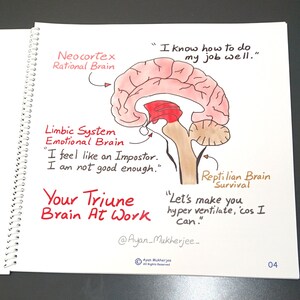 Neocortex
Rational Brain
"I know how to do
my job well."
Limbic System
Emotional Brain
"I feel like an Impostor.
I am not good enough."
Reptilian Brain
Survival
"Let's make you
hyper ventilate, 'cos I
can."
Your Triune
Brain At Work
@Ayan_Mukherjee_
© Ayan Mukherjee
All Rights Reserved
04